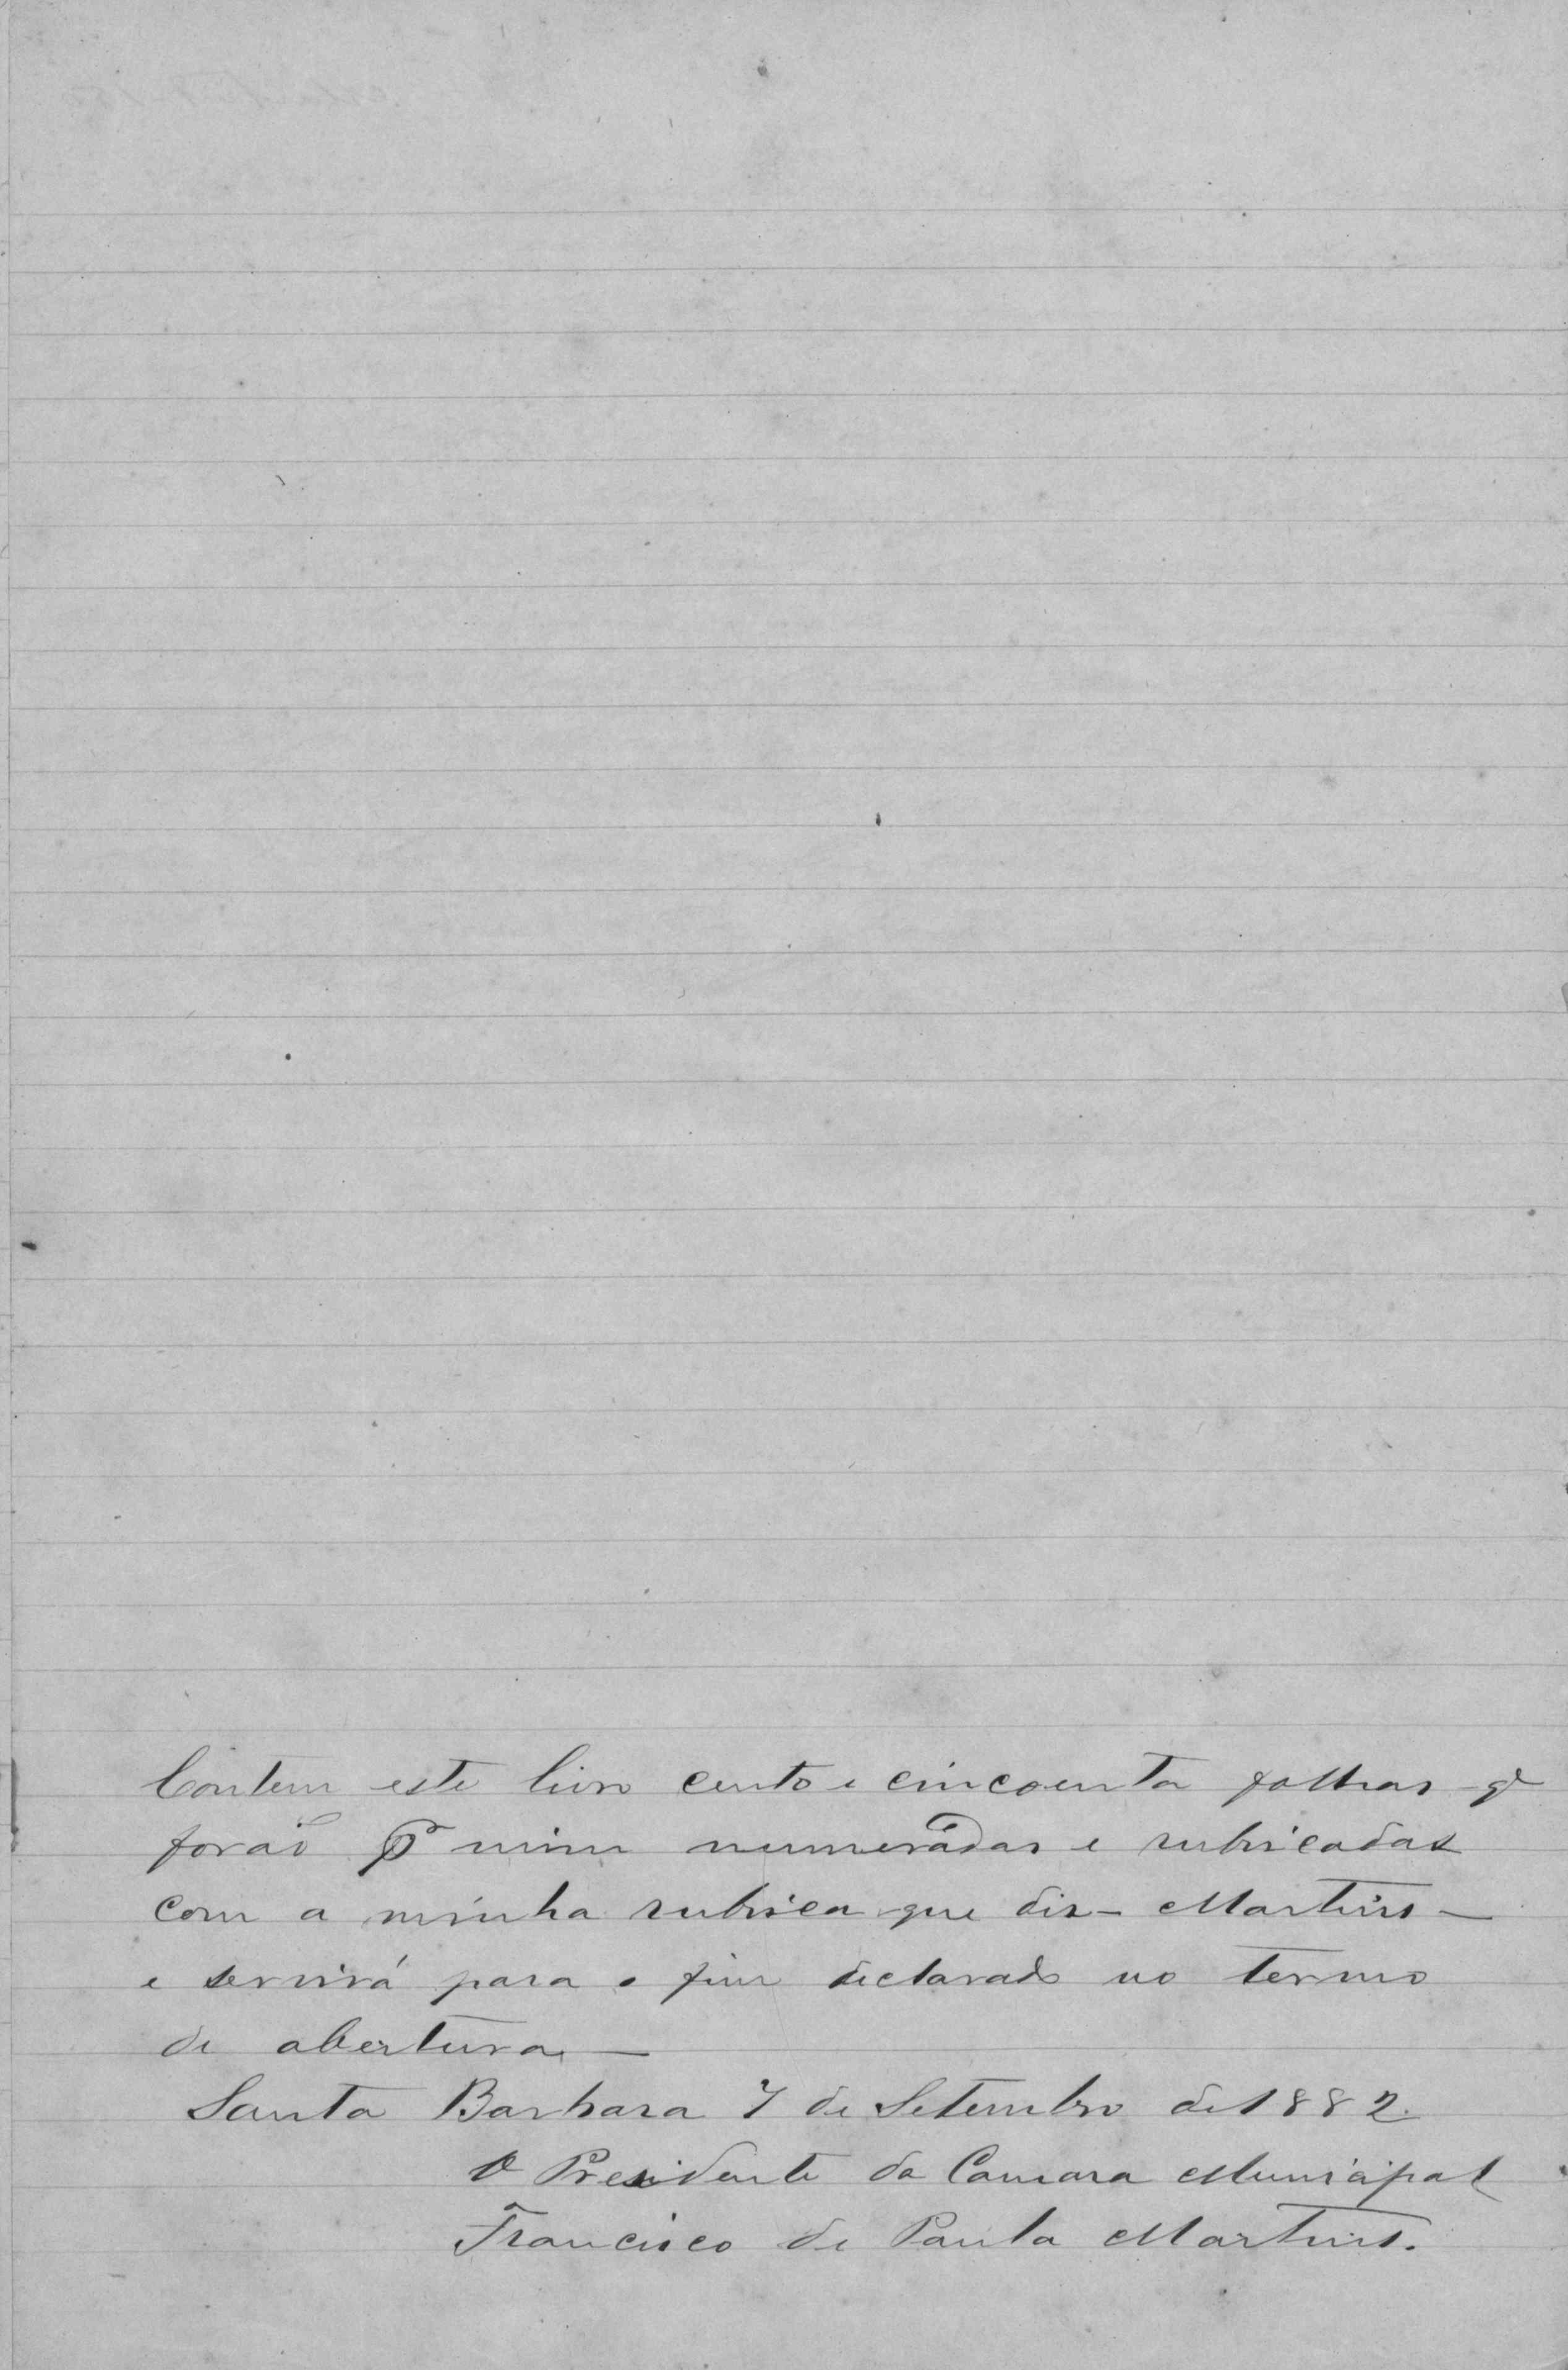 Contem este livro cento e cincoenta folhas q̃
forão pr mim numerádas e rubricadas
com a minha rubrica que diz – Martins –
e servirá para o fim declarado no termo
de abertura –
Santa Barbara 7 de Setembro de 1882.
O Presidente da Camara Municipal
Francisco de Paula Martins.